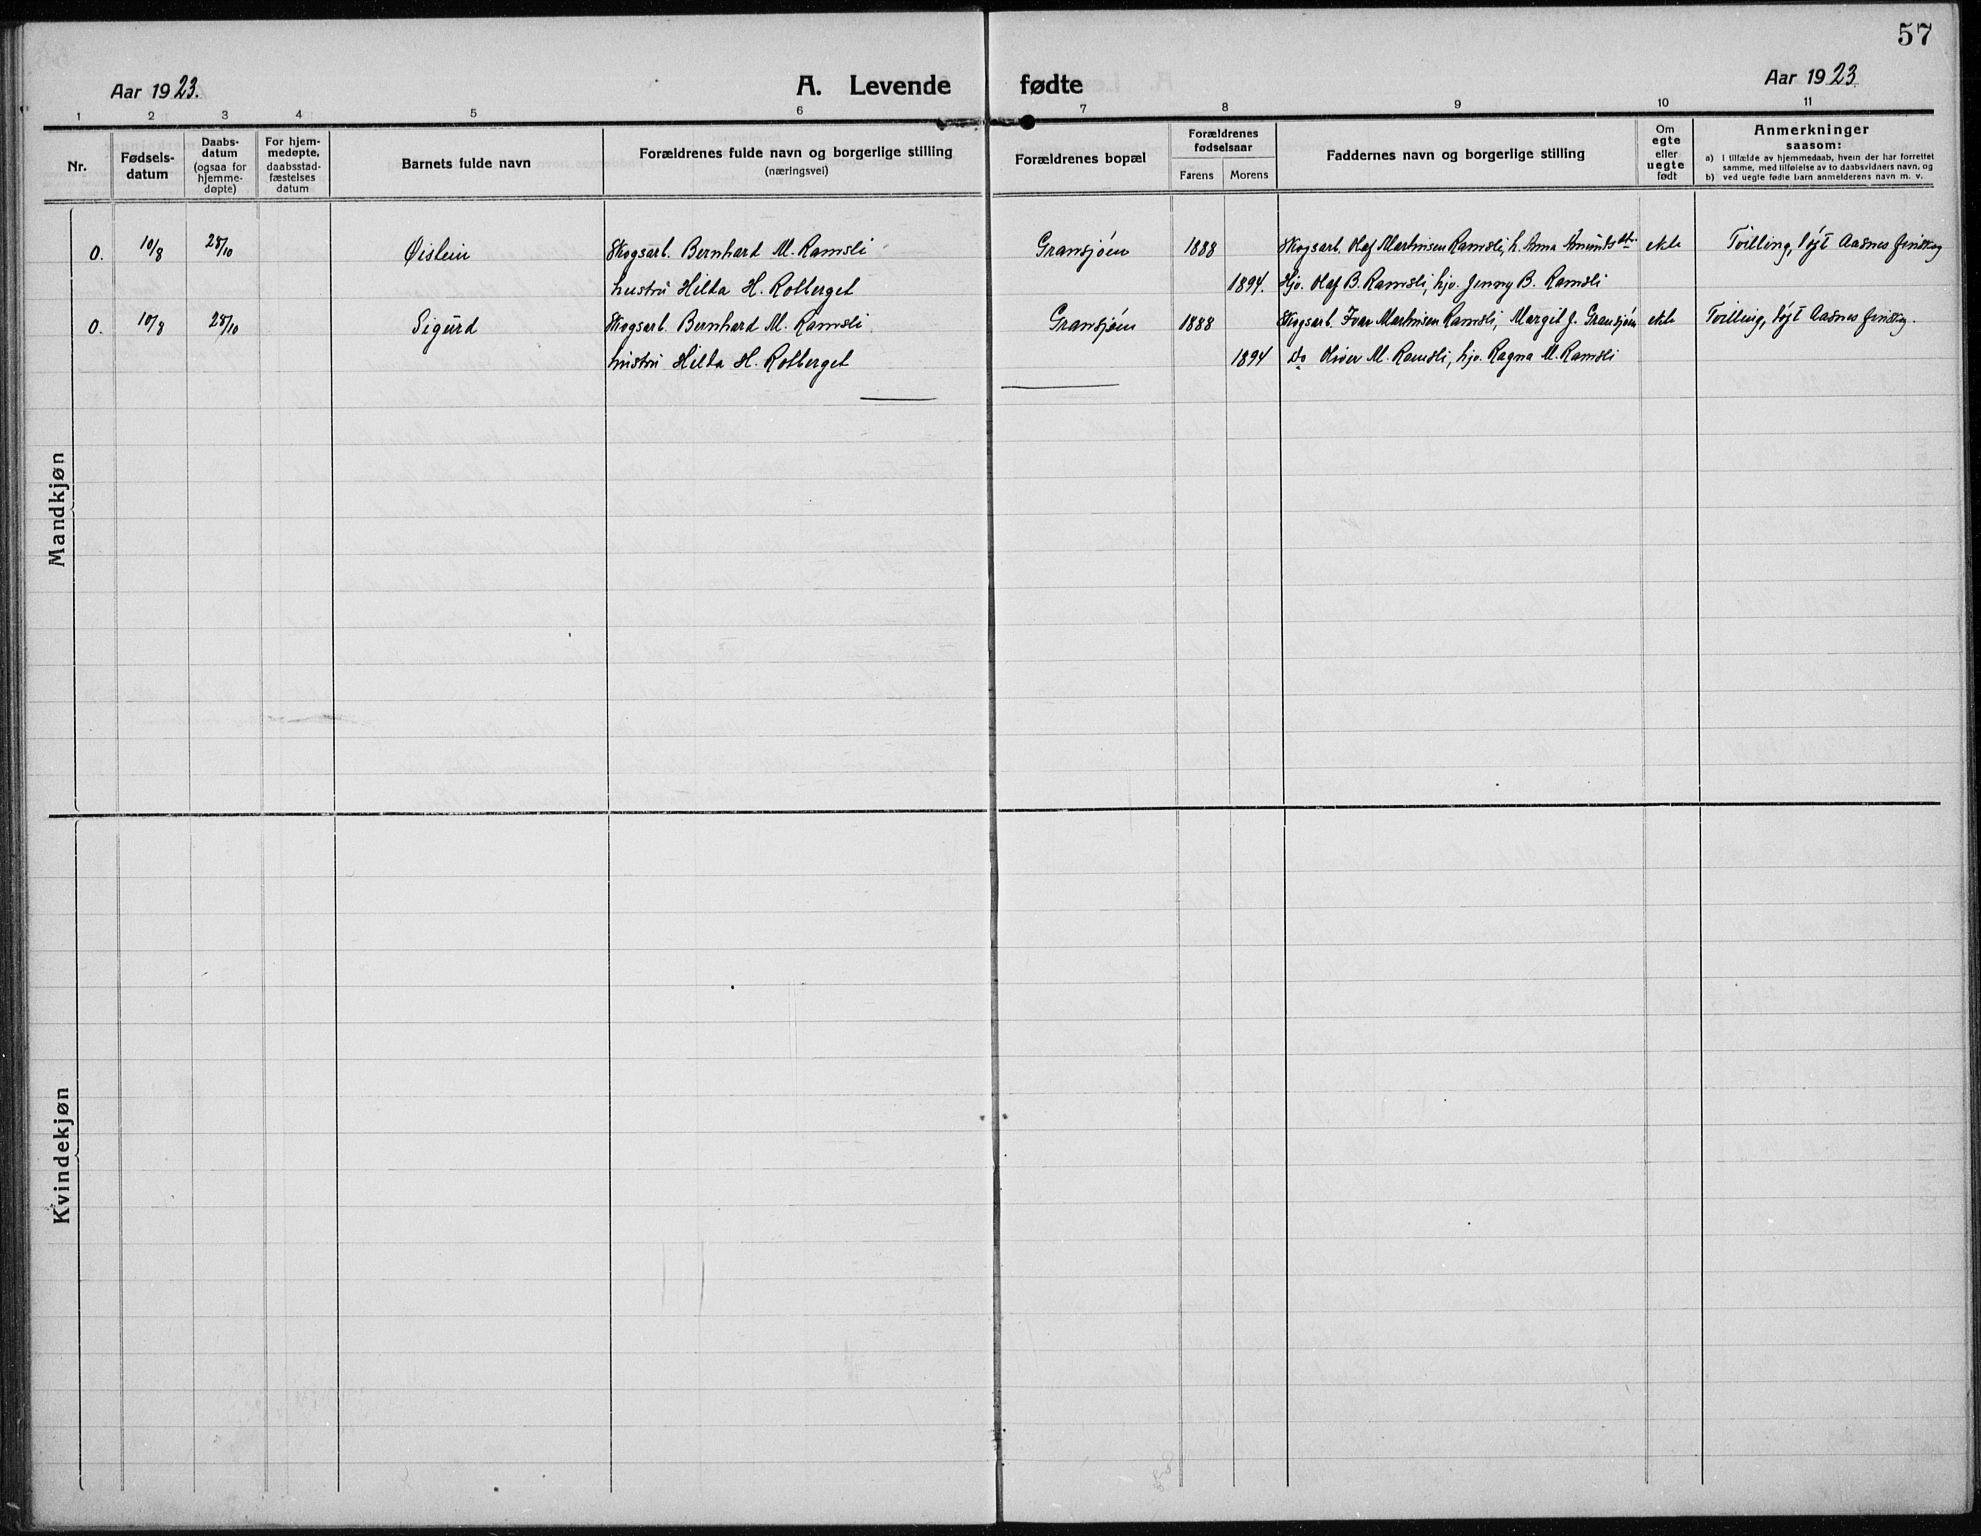 57
Aar 1923.
A. Levende fødte
Aar 1923
1 2 3 4 5 6 7 8 9 10 11
Nr.
Fødsels-
datum
Daabs-
datum
(ogsaa for
hjemme-
døpte)
For hjem-
medøpte,
daabsstad-
fæstelses
datum
Barnets fulde navn
Forældrenes fulde navn og borgerlige stilling
(næringsvei)
Forældrenes bopæl
Forældrenes
fødselsaar
Farens Morens
Faddernes navn og borgerlige stilling
Om
egte
eller
uegte
født
Anmerkninger
saasom:
a) I tilfælde av hjemmedaab, hvem der har forrettet
samme, med tilføielse av to daabsvidners navn, og
b) ved uegte fødte barn anmelderens navn m. v.
Mandkjøn
0. 10/8 28/10 Øistein Skogsarb. Bernhard M. Ramsli Gransjøen 1888 Skogsarb. Olaf Martinsen Ramsli, h. Anna Amundsdtr. ekte Tvilling, Aasnes
hustru Hilda H. Rotberget 1894. Hjv. Olaf B. Ramsli, hjv. Jenny B. Ramsli
0. 10/8 28/10 Sigurd Skogsarb. Bernhard M. Ramsli Gransjøen 1888 Skogsarb. Ivar Martinsen Ramsli, Margit J. Gransjøen ekte Tvilling, Aasnes
hustru Hilda H. Rotberget 1894 Do Oliver M. Ramsli, hjv. Ragna M. Ramsli
Kvindekjøn